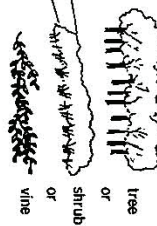 tree
or
shrub
or
vine